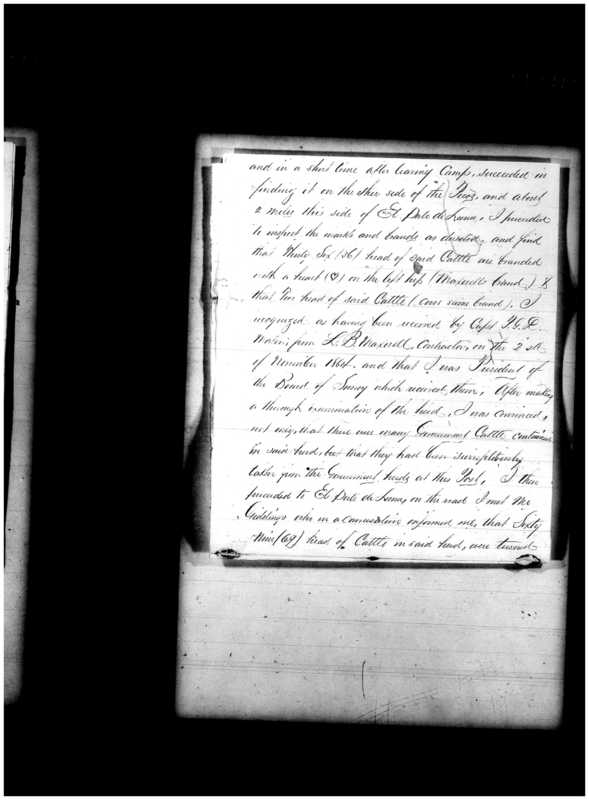 and in a short time after leaving Camp, succeeded in
finding it on the other side of the and about
2 miles this side of El Pato de Luna, I proceeded
to inspect the marks and brands as directed, and find
that Thirty Six (36) head of said Cattle are branded
with a heart (♡) on the left hip (Maxwell's brand,) &
that head of said Cattle ( same brand). I
recognized as having been received by Capt
from L. B. Maxwell, Contractor, on the 2d
of November 1864. and that I was President of
the Board of Survey which received them, After making
a through examination of the herd, I was convinced,
not only, that there were many Government Cattle contained
in said herd, but that they had been surreptitiously
taken from the Government herds at this Post, I then
proceeded to El Pato de Luna, on the road I met Mr
Giddings who in a conversation informed me, that Sixty
Nine (69) head of Cattle in said herd, were turned